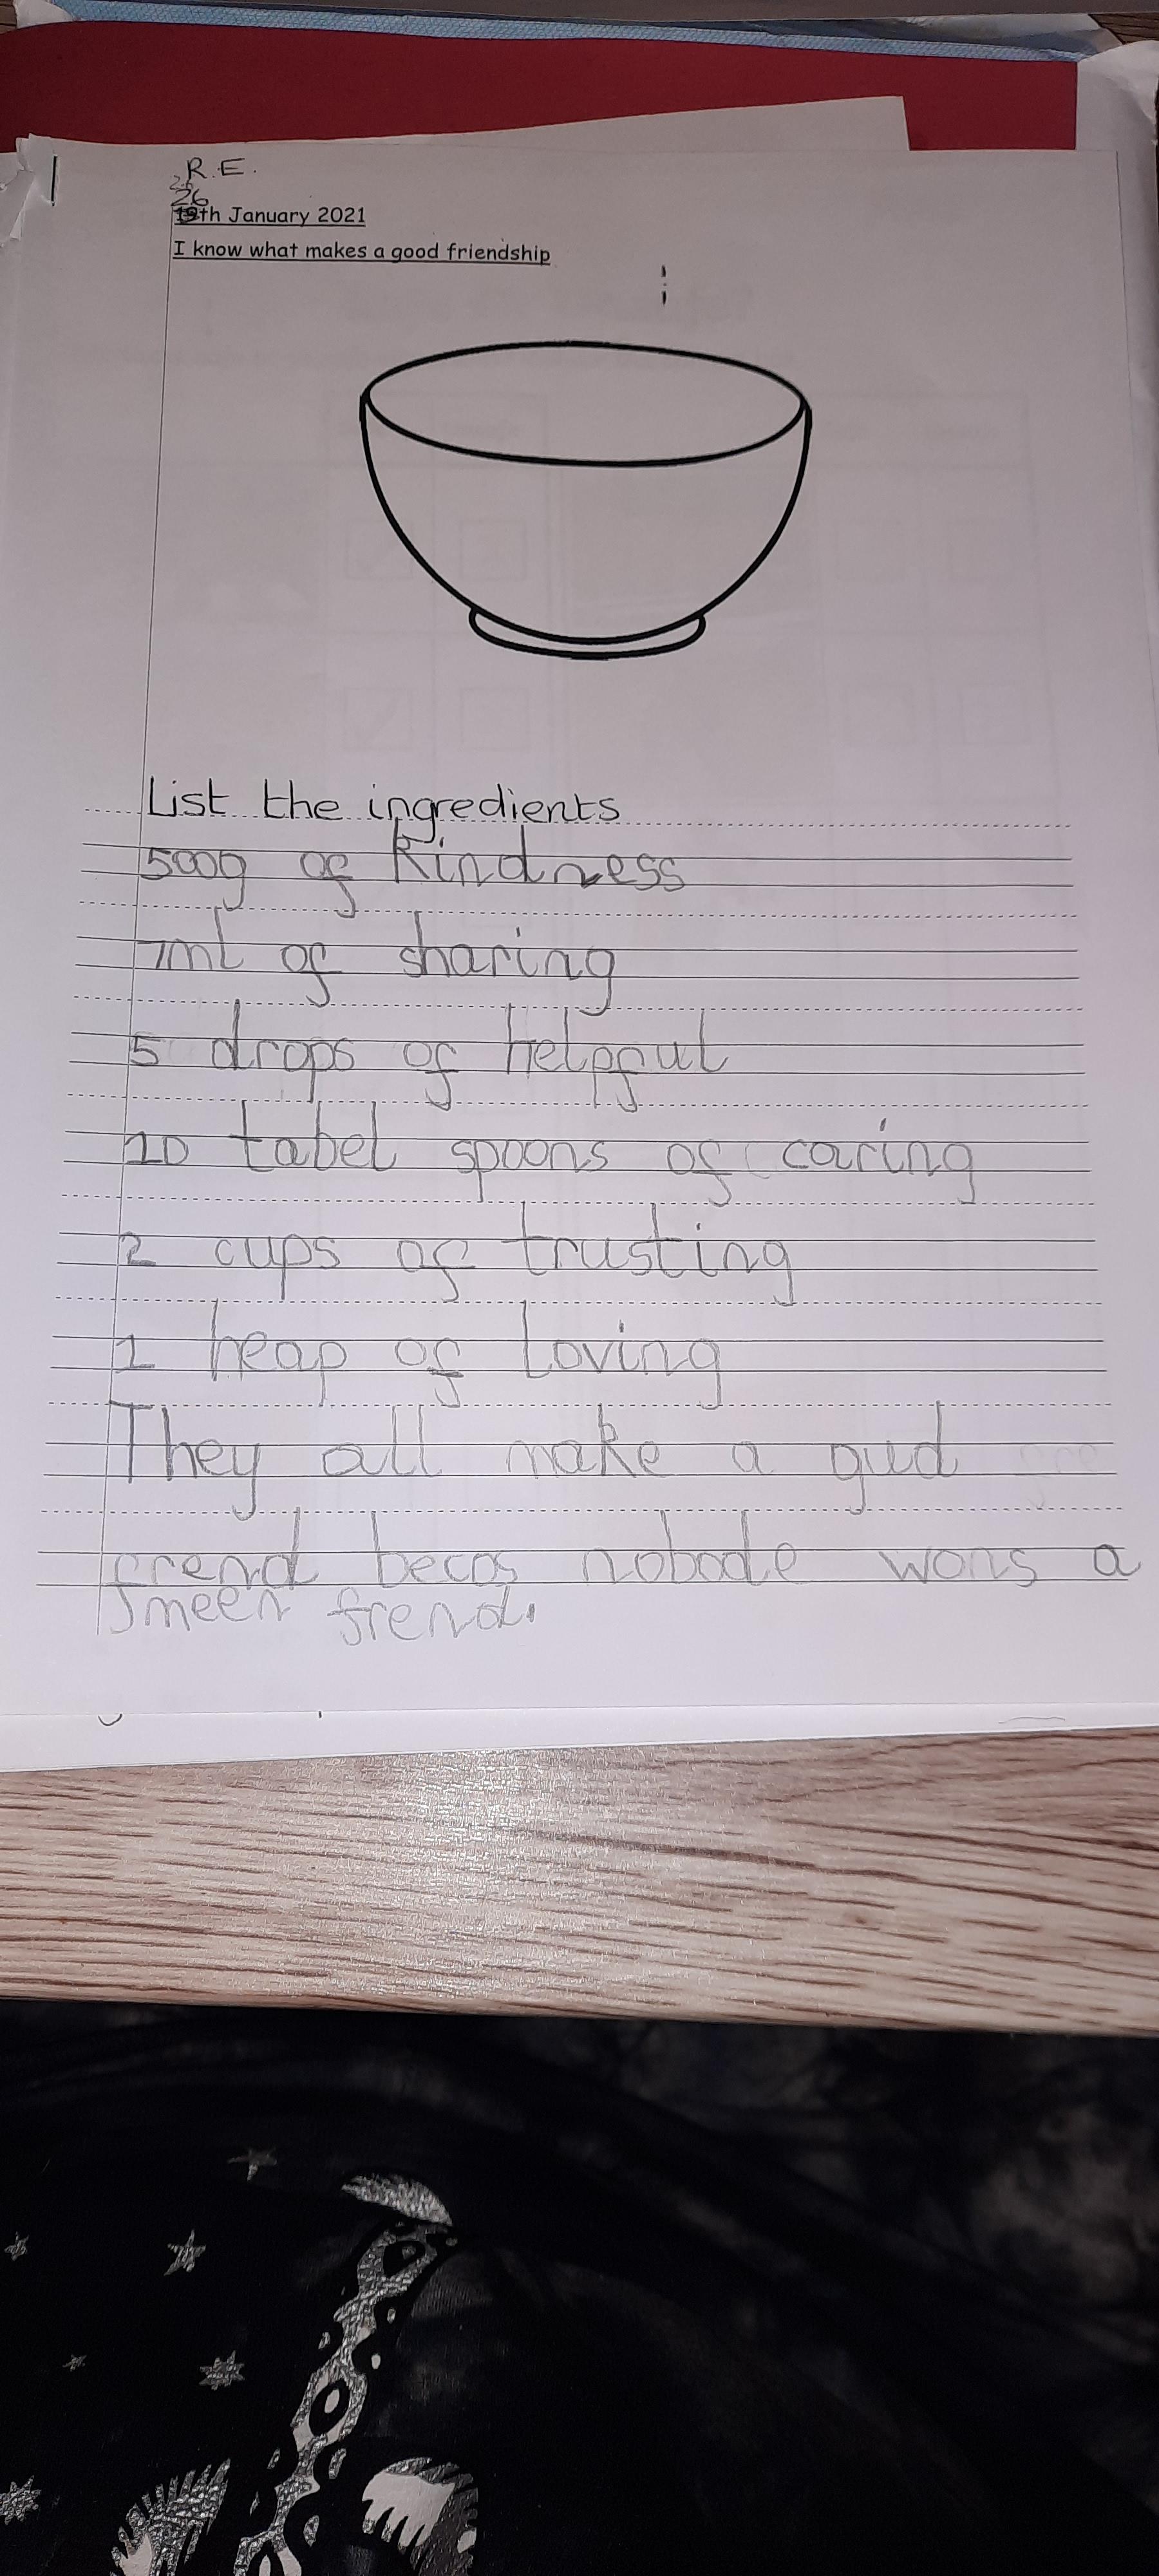 R.E.
26
26
19th January 2021
I know what makes a good friendship
List the ingredients
500g of kindness
7ml of sharing
5 drops of helpful
10 tabel spoons of caring
2 cups of trusting
1 heap of loving
They all make a gud
frend becos nobode wons a
meen frend.